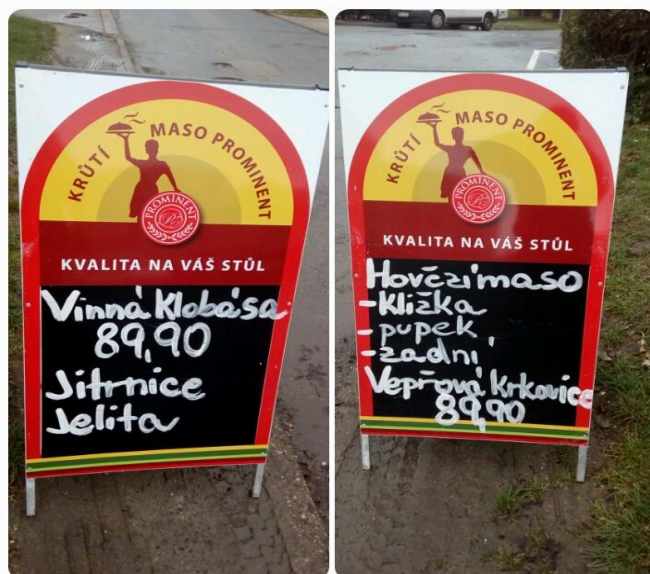 KRŮTÍ MASO PROMINENT
PROMINENT
KVALITA NA VÁŠ STŮL
Vinná Klobása
89,90
Jitrnice
Jelita
KRŮTÍ MASO PROMINENT
PROMINENT
KVALITA NA VÁŠ STŮL
Hovězí maso
-Kližka
-pupek
-zadní
Vepřová Krkovice
89,90